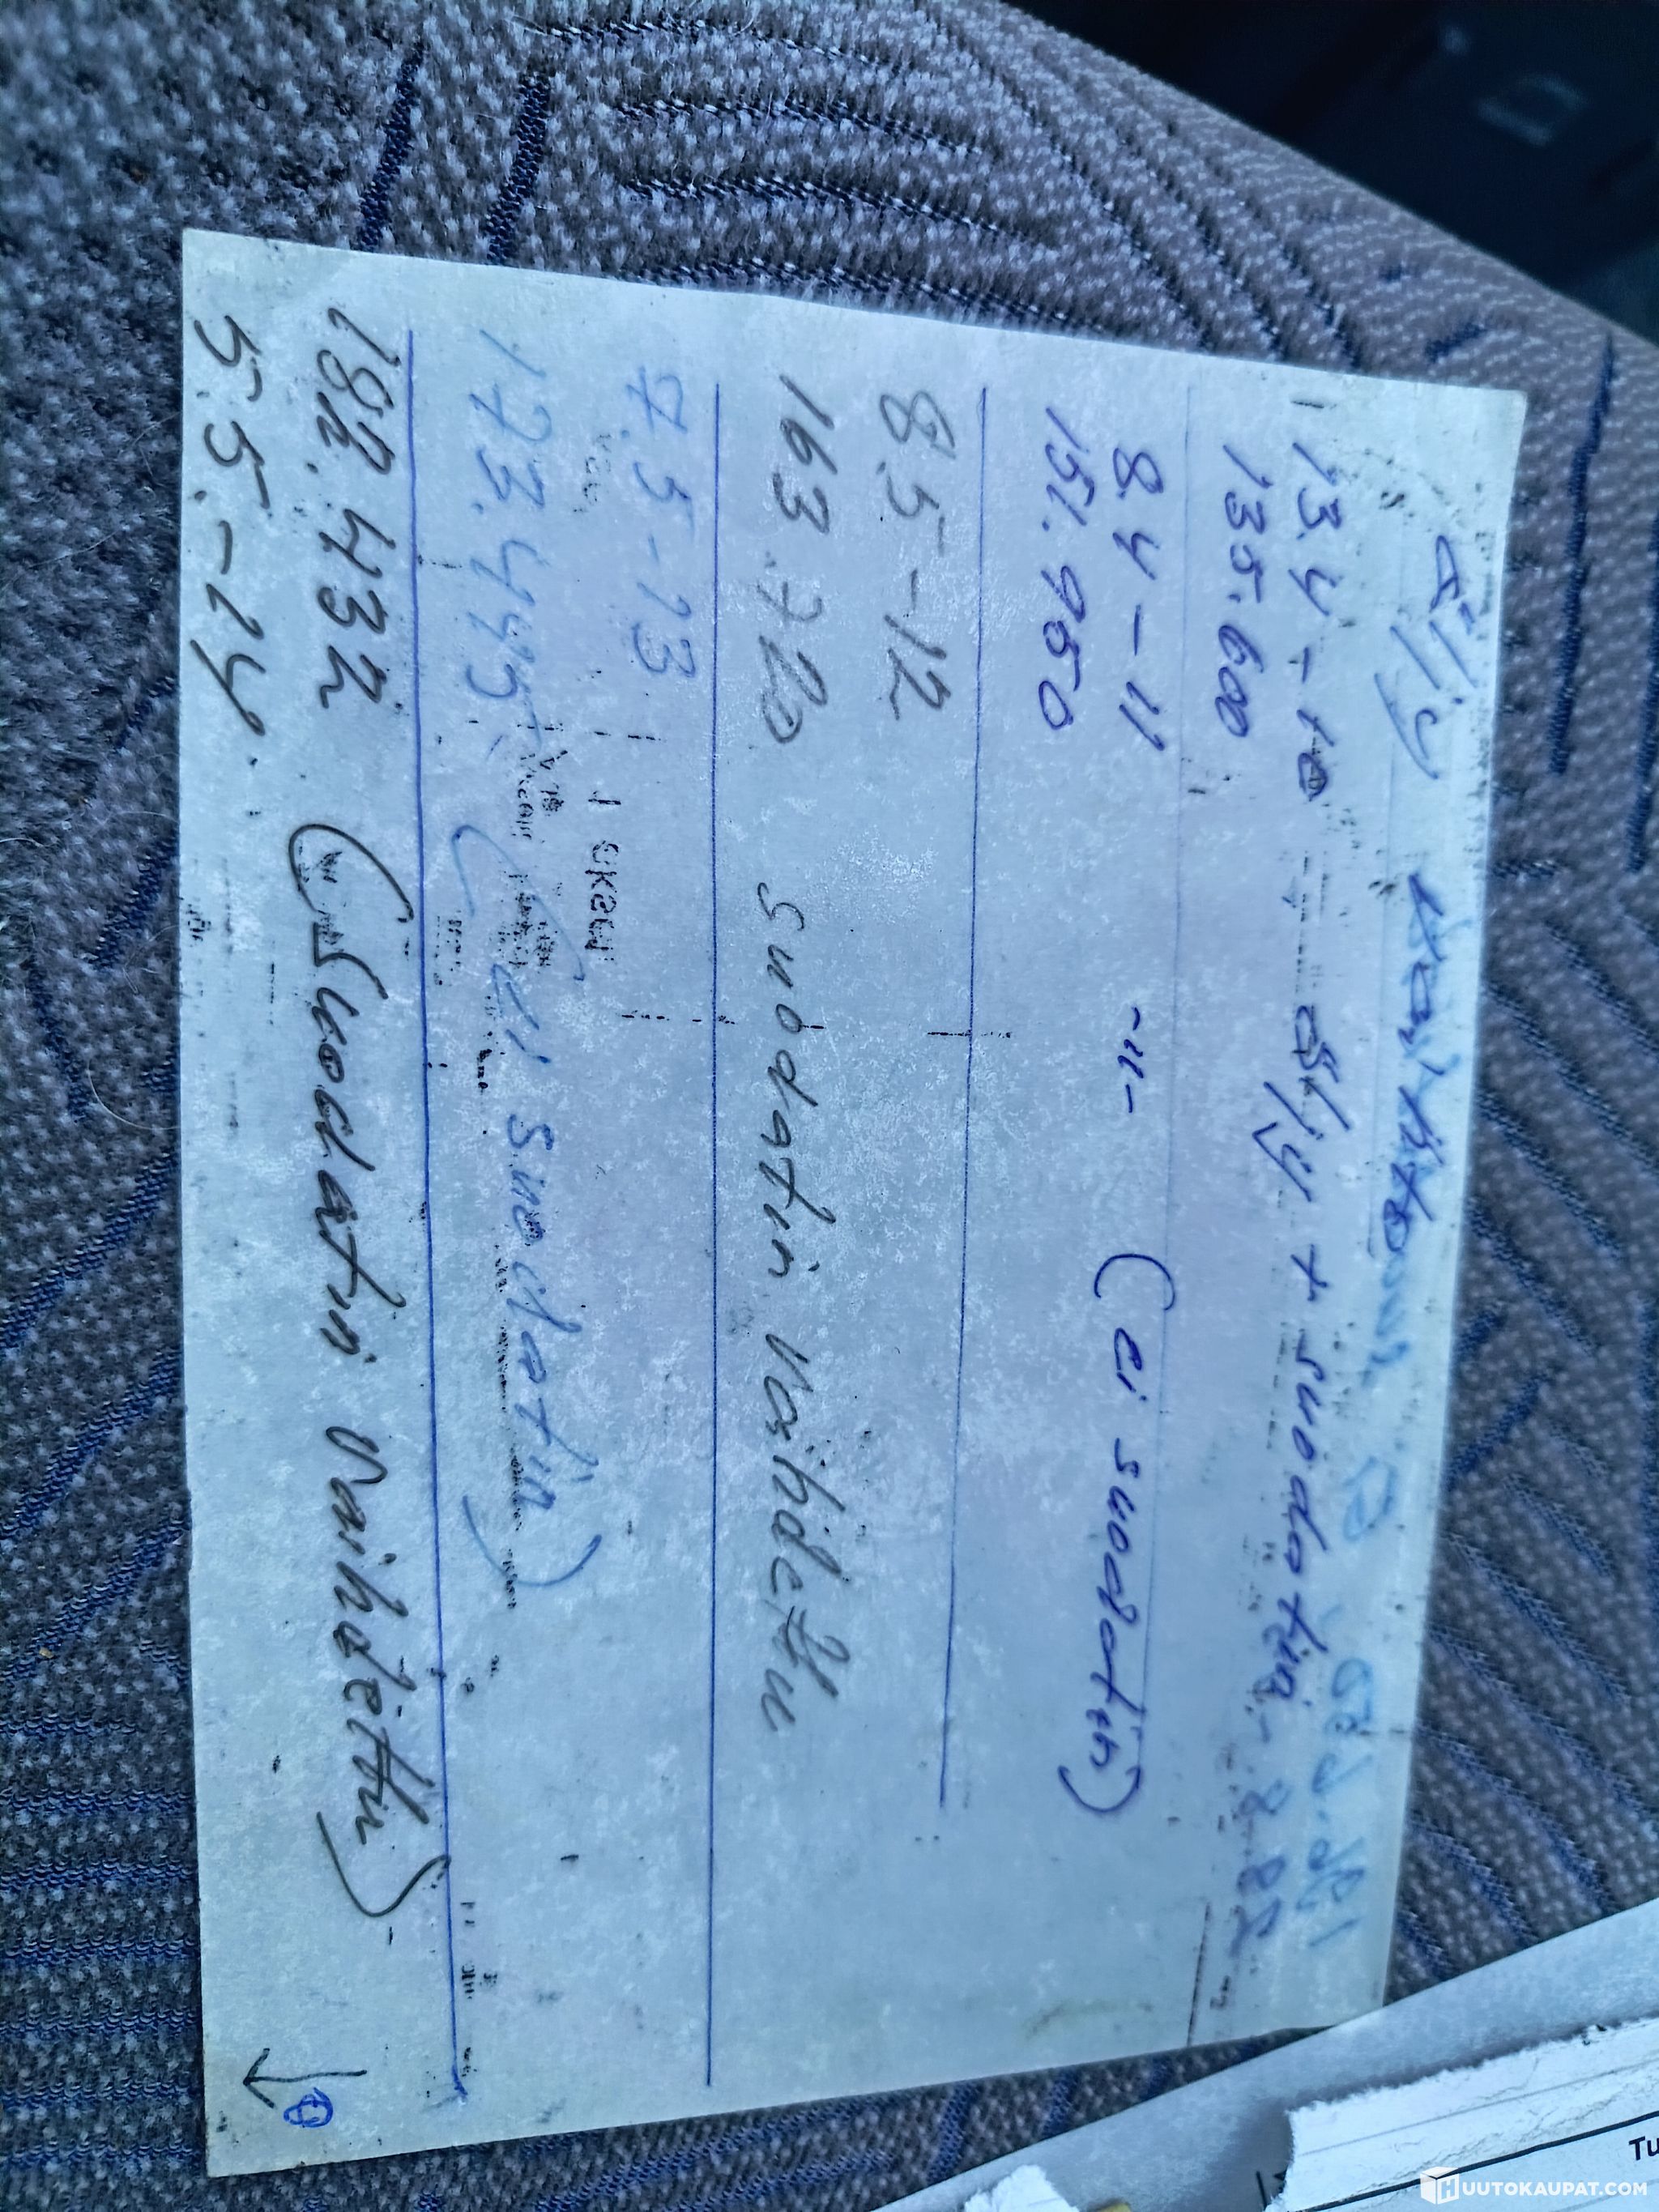 Öljy
13.4-10 öljy + suodatin
135.600
8.4-11 -"- (ei suodatin)
151.950
8.5-12
163.720 suodatin vaihdettu
7.5-13
173.445 (ei suodatin)
182.432 (Suodatin vaihdettu)
5.5.-14.
Tu
HUUTOKAUPAT.COM